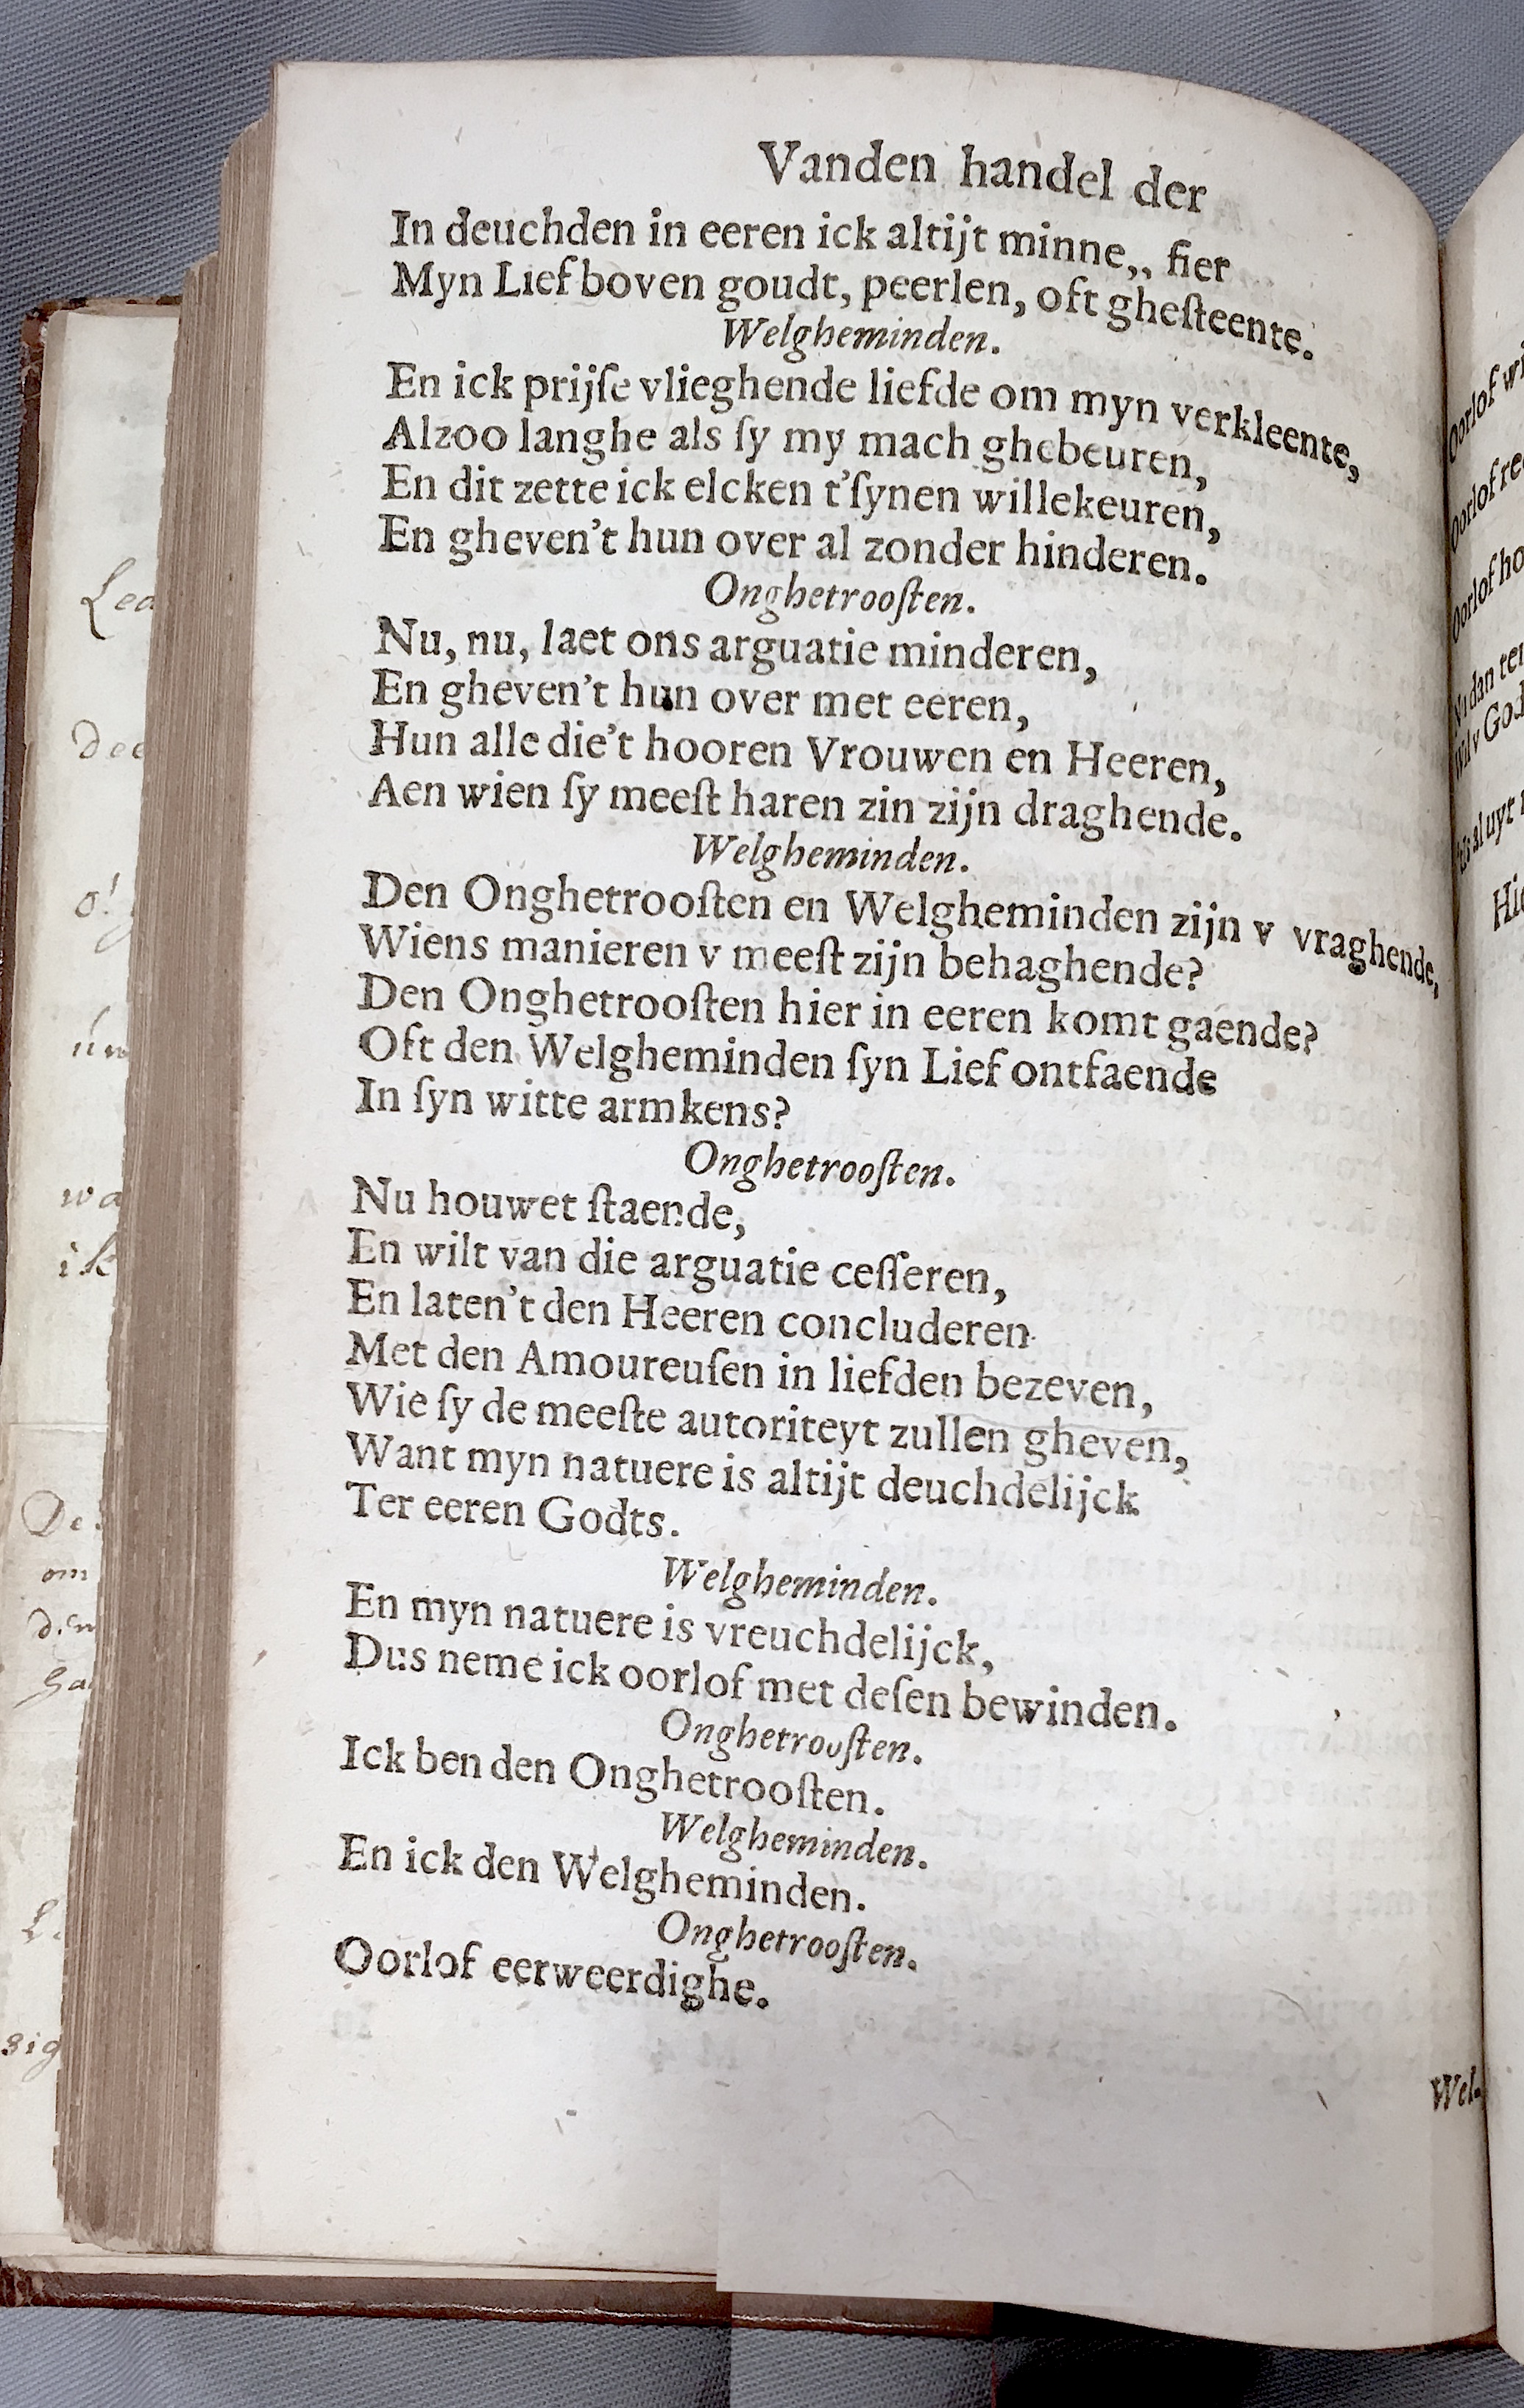 Vanden handel der
In deuchden in eeren ick altijt minne,, fier
Myn Lief boven goudt, peerlen, oft gheſteente.
Welgheminden.
En ick prijſe vlieghende liefde om myn verkleente,
Alzoo langhe als ſy my mach ghebeuren,
En dit zette ick elcken t'ſynen willekeuren,
En gheven't hun over al zonder hinderen.
Onghetrooſten.
Nu, nu, laet ons arguatie minderen,
En gheven't hun over met eeren,
Hun alle die't hooren Vrouwen en Heeren,
Aen wien ſy meeſt haren zin zijn draghende.
Welgheminden.
Den Onghetrooſten en Welgheminden zijn v vraghende,
Wiens manieren v meeſt zijn behaghende?
Den Onghetrooſten hier in eeren komt gaende?
Oft den Welgheminden ſyn Lief ontfaende
In ſyn witte armkens?
Onghetrooſten.
Nu houwet ſtaende,
En wilt van die arguatie ceſſeren,
En laten't den Heeren concluderen
Met den Amoureuſen in liefden bezeven,
Wie ſy de meeſte autoriteyt zullen gheven,
Want myn natuere is altijt deuchdelijck
Ter eeren Godts.
Welgheminden.
En myn natuere is vreuchdelijck,
Dus neme ick oorlof met deſen bewinden.
Onghetrooſten.
Ick ben den Onghetrooſten.
Welgheminden.
En ick den Welgheminden.
Onghetrooſten.
Oorlof eerweerdighe.
Wel-
Oorlof
Oorlof
Oorlof
dan